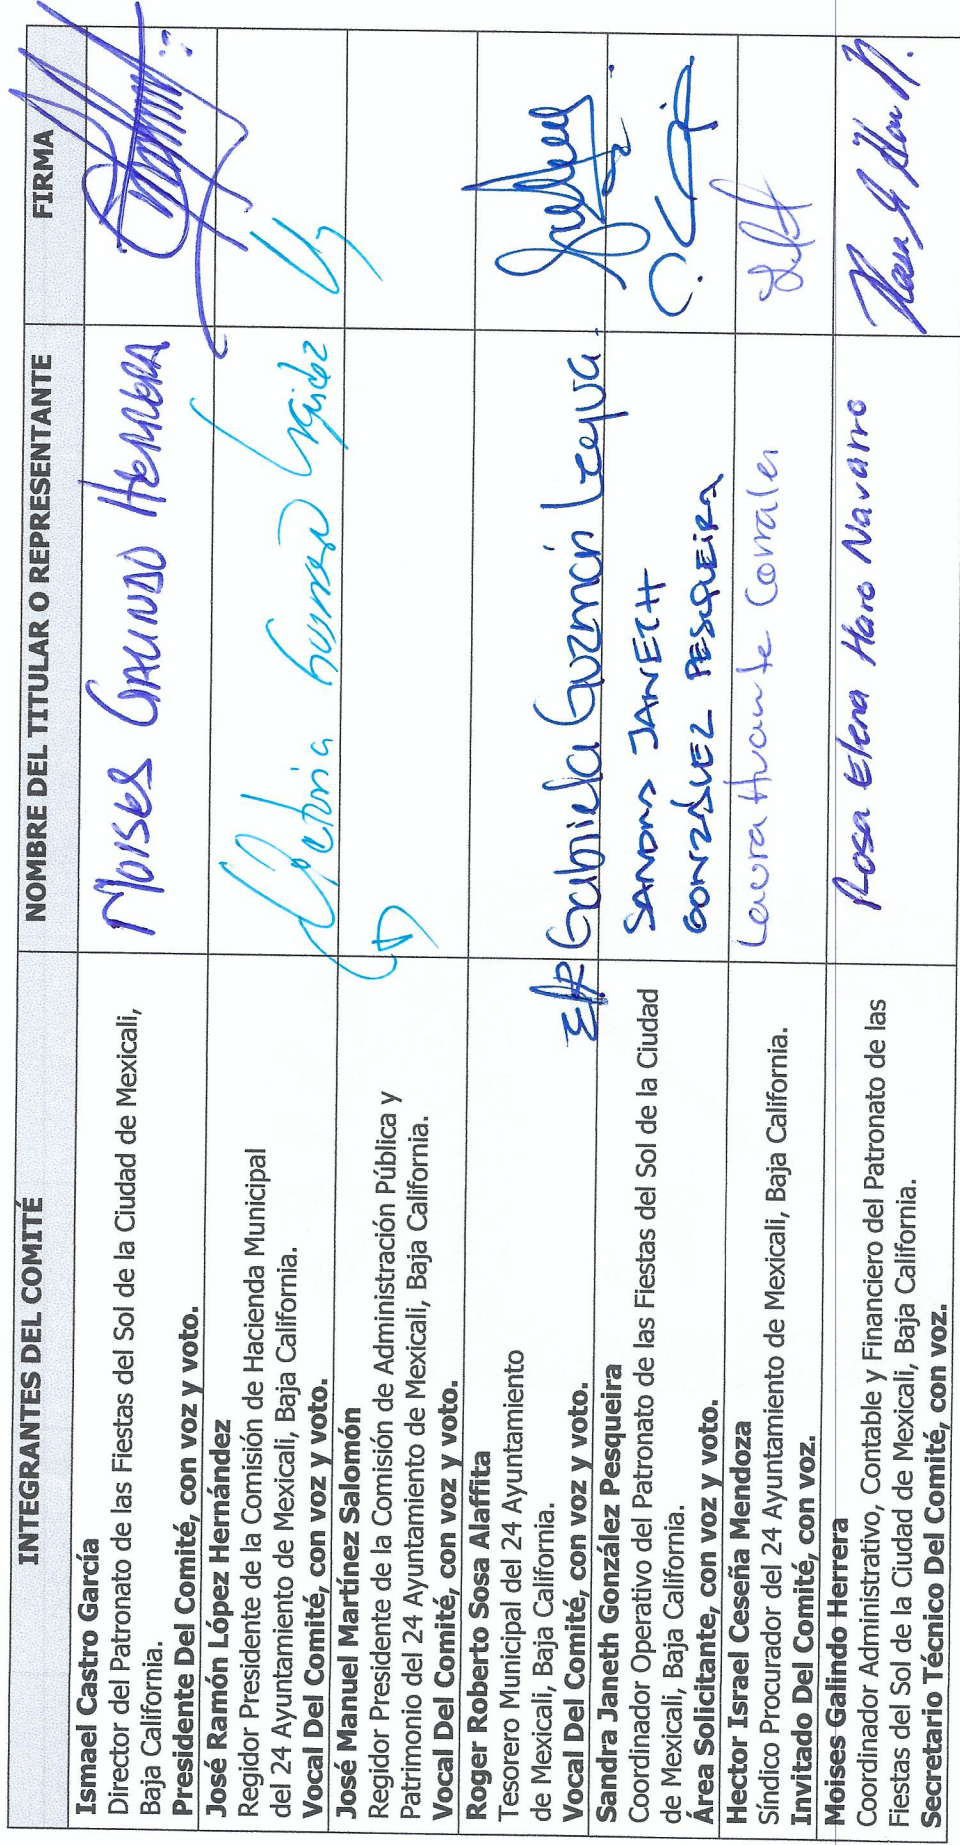 INTEGRANTES DEL COMITÉ
NOMBRE DEL TITULAR O REPRESENTANTE
FIRMA
Ismael Castro García
Director del Patronato de las Fiestas del Sol de la Ciudad de Mexicali,
Baja California.
Presidente Del Comité, con voz y voto.
MOISES GALINDO HERRERA
José Ramón López Hernández
Regidor Presidente de la Comisión de Hacienda Municipal
del 24 Ayuntamiento de Mexicali, Baja California.
Vocal Del Comité, con voz y voto.
José Manuel Martínez Salomón
Regidor Presidente de la Comisión de Administración Pública y
Patrimonio del 24 Ayuntamiento de Mexicali, Baja California.
Vocal Del Comité, con voz y voto.
Roger Roberto Sosa Alaffita
Tesorero Municipal del 24 Ayuntamiento
de Mexicali, Baja California.
Vocal Del Comité, con voz y voto.
Gabriela Guzmán
Sandra Janeth González Pesqueira
Coordinador Operativo del Patronato de las Fiestas del Sol de la Ciudad
de Mexicali, Baja California.
Área Solicitante, con voz y voto.
SANDRA JANETH
GONZÁLEZ PESQUEIRA
Hector Israel Ceseña Mendoza
Síndico Procurador del 24 Ayuntamiento de Mexicali, Baja California.
Invitado Del Comité, con voz.
Laura Huante Corrales
Moises Galindo Herrera
Coordinador Administrativo, Contable y Financiero del Patronato de las
Fiestas del Sol de la Ciudad de Mexicali, Baja California.
Secretario Técnico Del Comité, con voz.
Rosa Elena Haro Navarro